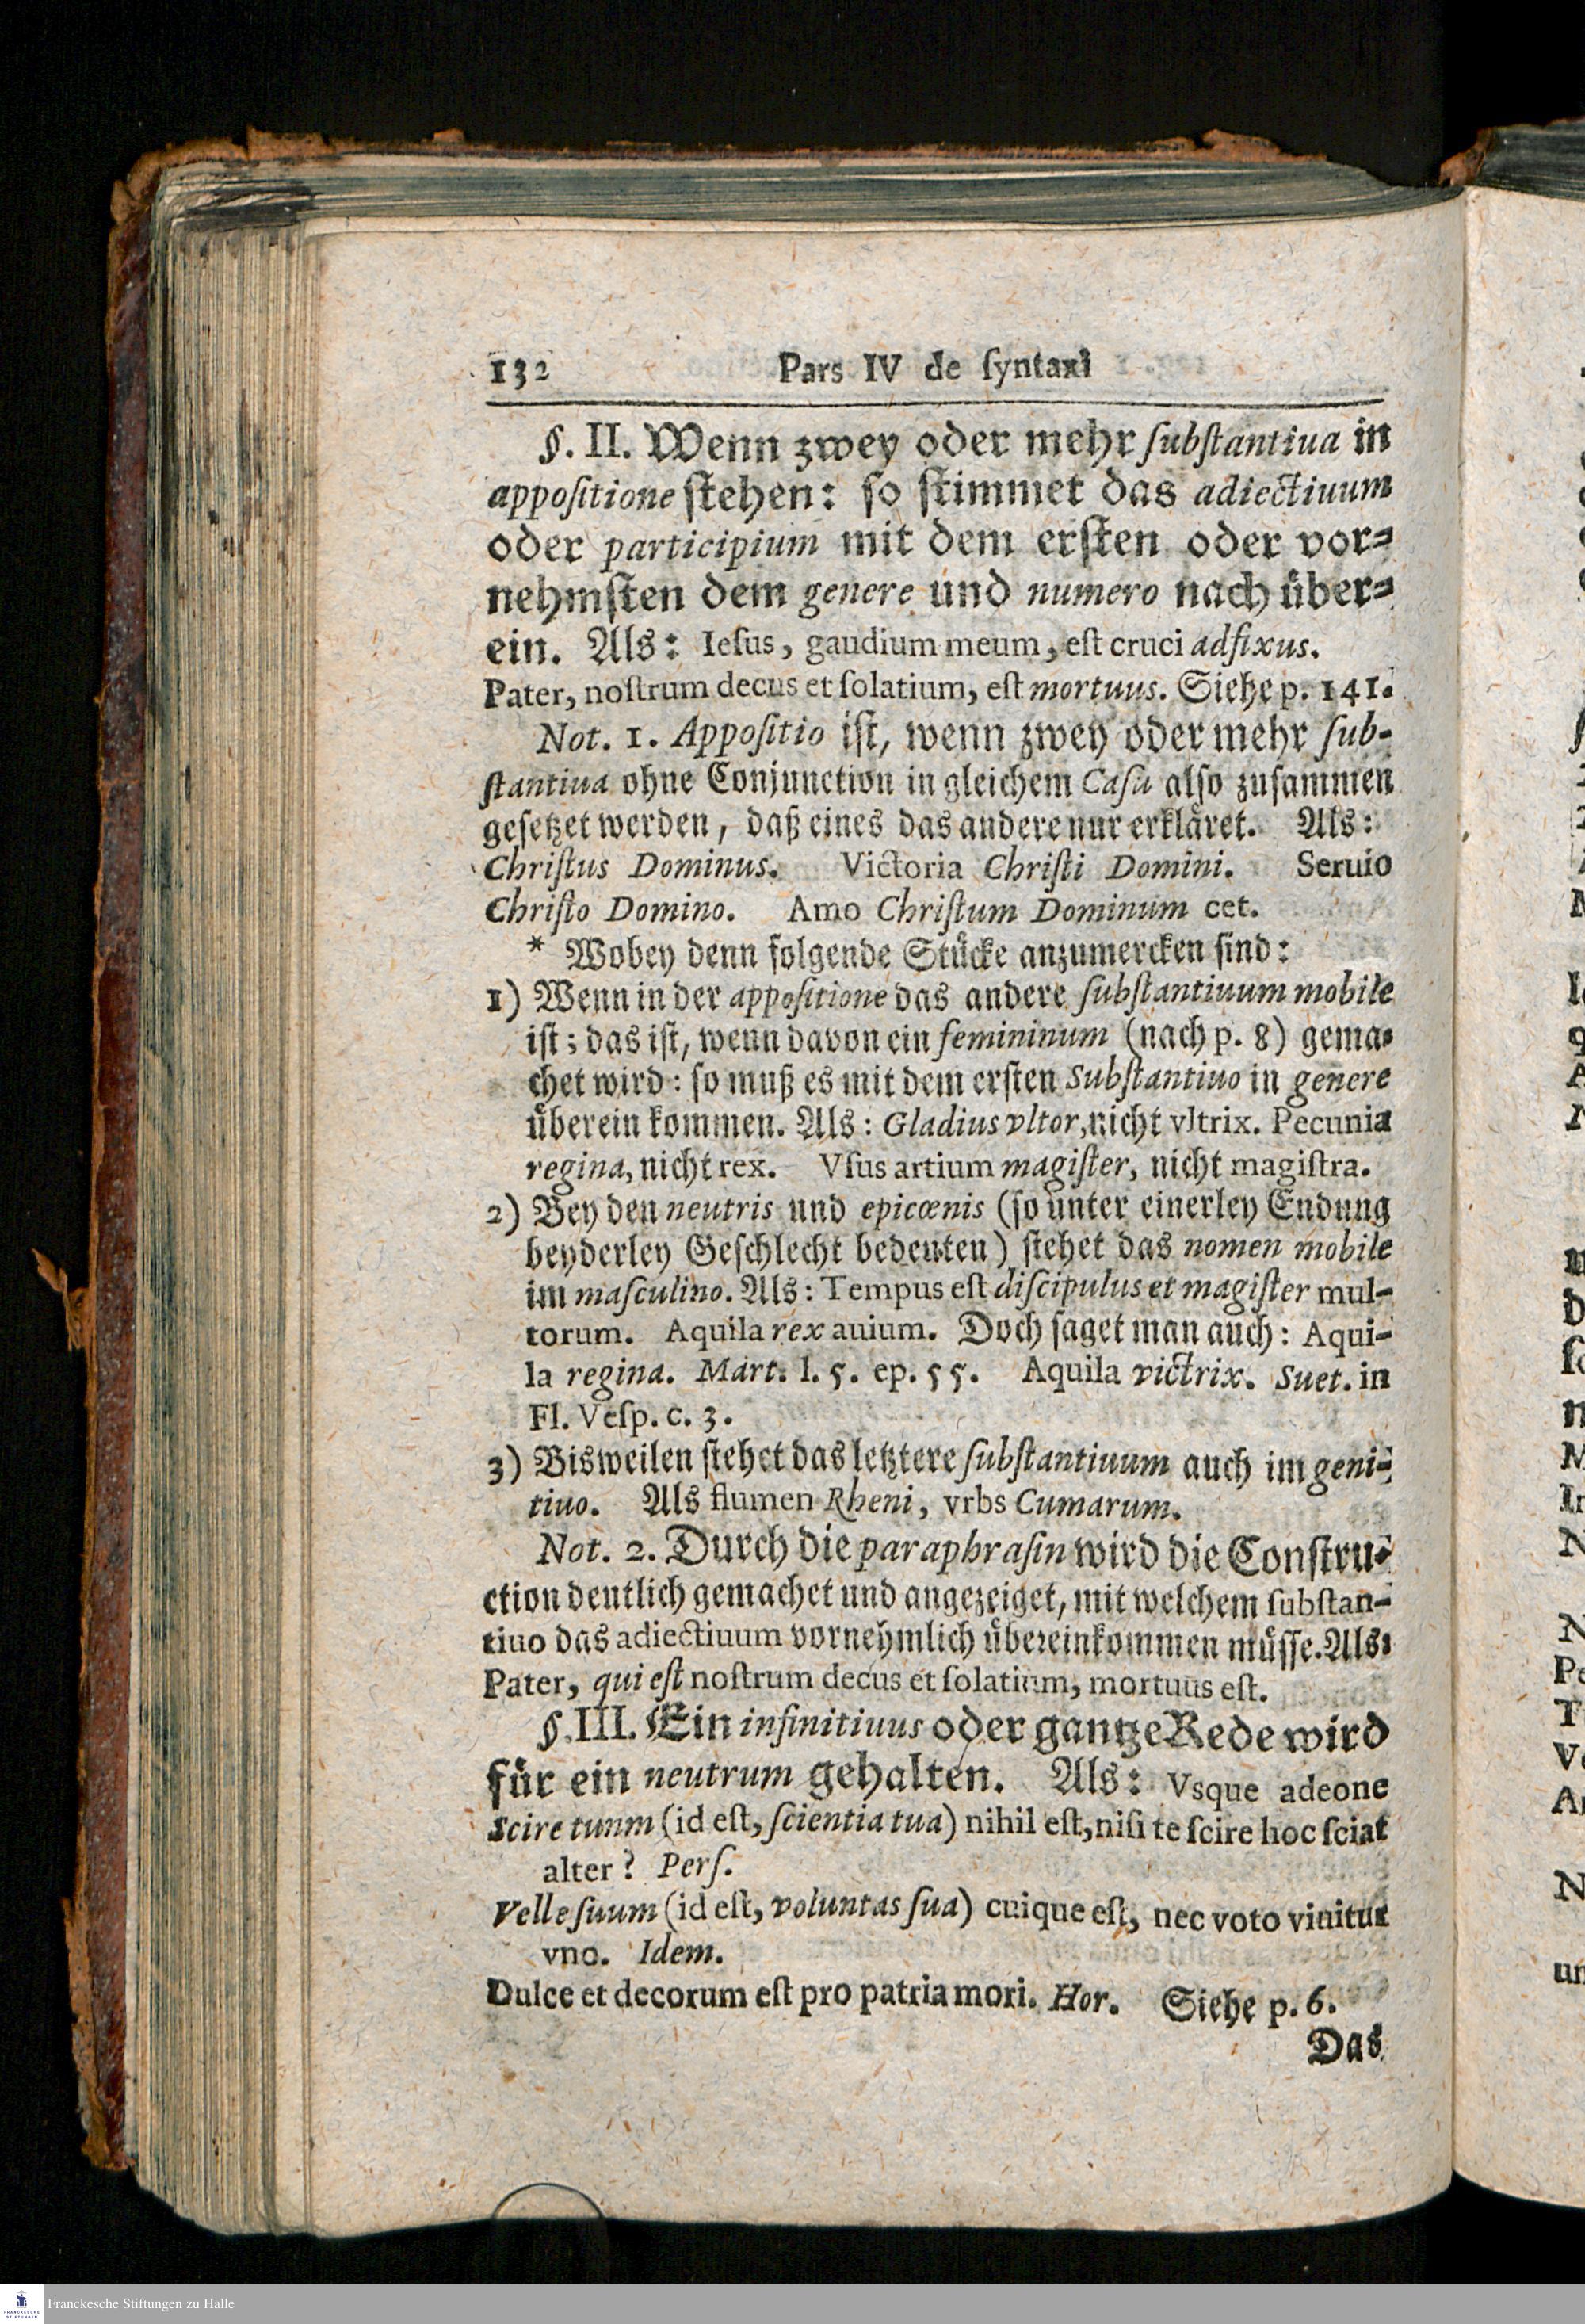 132 Pars IV de ſyntaxi
§. II. Wenn zwey oder mehr ſubſtantiua in
appoſitione ſtehen: ſo ſtimmet das adiectiuum
oder participium mit dem erſten oder vor-
nehmſten dem genere und numero nach über-
ein. Als: Ieſus, gaudium meum, eſt cruci adfixus.
Pater, noſtrum decus et ſolatium, eſt mortuus. Siehe p. 141.
Not. 1. Appoſitio iſt, wenn zwey oder mehr ſub-
ſtantiua ohne Conjunction in gleichem Caſu alſo zuſammen
geſetzet werden, daß eines das andere nur erkläret. Als:
Chriſtus Dominus. Victoria Chriſti Domini. Seruio
Chriſto Domino. Amo Chriſtum Dominum cet.
* Wobey denn folgende Stücke anzumercken ſind:
1) Wenn in der appoſitione das andere ſubſtantiuum mobile
iſt; das iſt, wenn davon ein femininum (nach p. 8) gema-
chet wird: ſo muß es mit dem erſten Subſtantiuo in genere
überein kommen. Als: Gladius vltor, nicht vltrix. Pecunia
regina, nicht rex. Vſus artium magiſter, nicht magiſtra.
2) Bey den neutris und epicœnis (ſo unter einerley Endung
beyderley Geſchlecht bedeuten) ſtehet das nomen mobile
im maſculino. Als: Tempus eſt diſcipulus et magiſter mul-
torum. Aquila rex auium. Doch ſaget man auch: Aqui-
la regina. Mart. l. 5. ep. 55. Aquila victrix. Suet. in
Fl. Veſp. c. 3.
3) Bisweilen ſtehet das letztere ſubſtantiuum auch im geni-
tiuo. Als flumen Rheni, vrbs Cumarum.
Not. 2. Durch die paraphraſin wird die Conſtru-
ction deutlich gemachet und angezeiget, mit welchem ſubſtan-
tiuo das adiectiuum vornehmlich übereinkommen müſſe. Als:
Pater, qui eſt noſtrum decus et ſolatium, mortuus eſt.
§. III. Ein infinitiuus oder gantze Rede wird
für ein neutrum gehalten. Als: Vsque adeone
Scire tunm (id eſt, ſcientia tua) nihil eſt, niſi te ſcire hoc ſciat
alter? Perſ.
Velle ſuum (id eſt, voluntas ſua) cuique eſt, nec voto viuitur
vno. Idem.
Dulce et decorum eſt pro patria mori. Hor. Siehe p. 6.
Das
Franckesche Stiftungen zu Halle